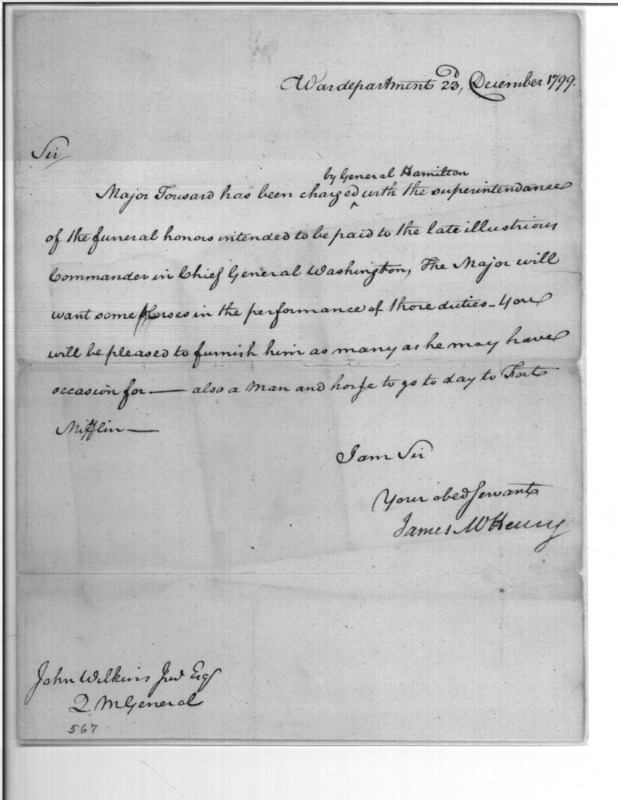 Wardepartment 23d, December 1799.
Sir
by General Hamilton
Major Tousard has been charged ^ with the superintendance
of the funeral honors intended to be paid to the late illustrious
Commander in Chief General Washington, The Major will
want some Horses in the performance of those duties - You
will be pleased to furnish him as many as he may have
occasion for — also a Man and horse to go to day to Fort
Mifflin —
I am Sir
Your obed Servant
James McHenry
John Wilkins Junr Esqr
Q. M General
567